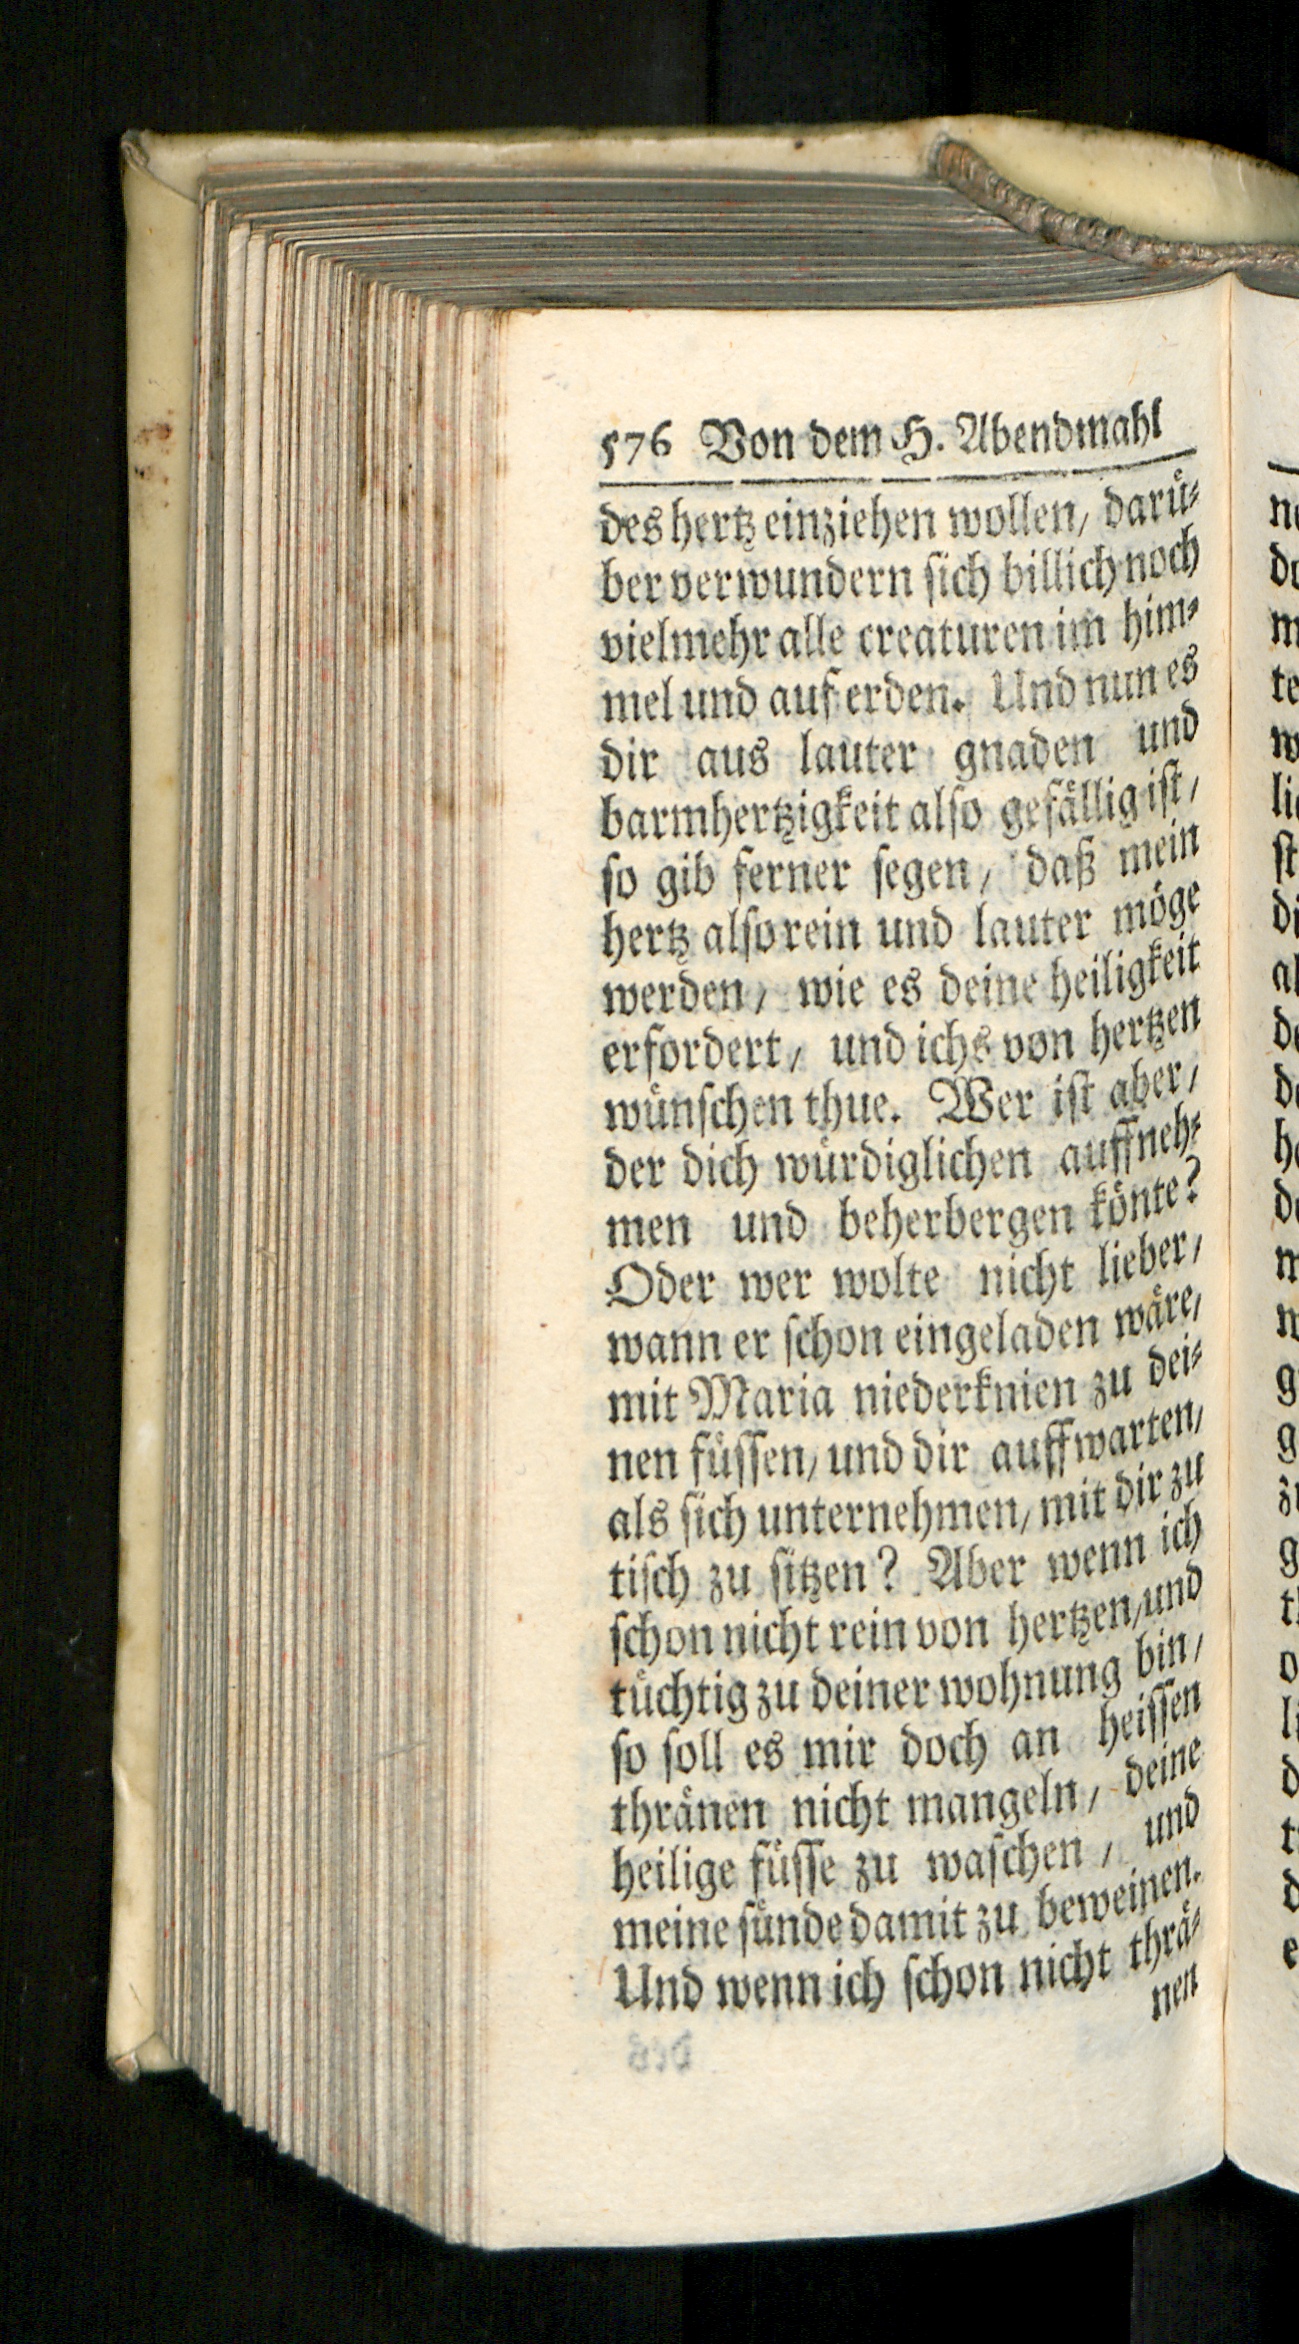 576 Von dem H. Abendmahl
des hertz einziehen wollen, darü-
ber verwundern sich billich noch
vielmehr alle creaturen im him-
mel und auf erden. Und nun es
dir aus lauter gnaden und
barmhertzigkeit also gefällig ist,
so gib ferner segen, daß mein
hertz also rein und lauter möge
werden, wie es deine heiligkeit
erfordert, und ichs von hertzen
wünschen thue. Wer ist aber,
der dich würdiglichen auffneh-
men und beherbergen könte?
Oder wer wolte nicht lieber,
wann er schon eingeladen wäre,
mit Maria niederknien zu dei-
nen füssen, und dir auffwarten,
als sich unternehmen, mit dir zu
tisch zu sitzen? Aber wenn ich
schon nicht rein von hertzen, und
tüchtig zu deiner wohnung bin,
so soll es mir doch an heissen
thränen nicht mangeln, deine
heilige füsse zu waschen, und
meine sünde damit zu beweinen.
Und wenn ich schon nicht thrä-
nen